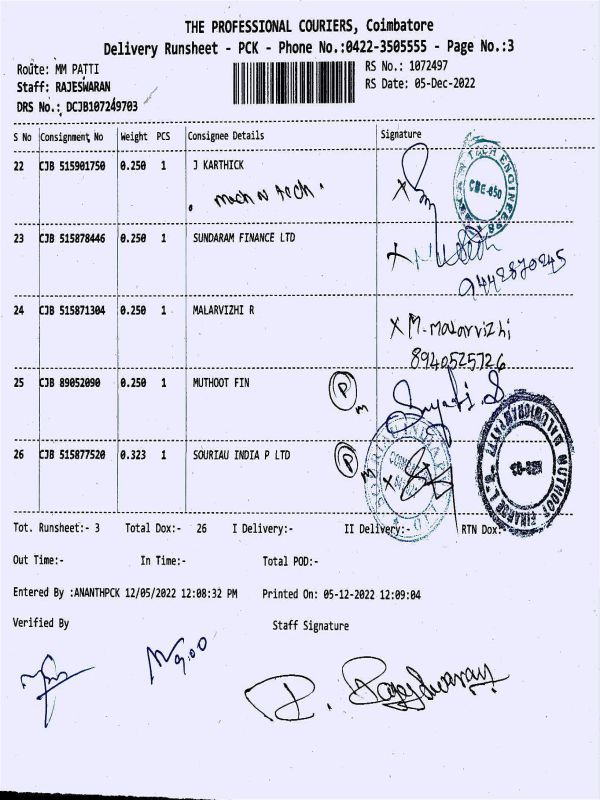 THE PROFESSIONAL COURIERS, Coimbatore
Delivery Runsheet - PCK - Phone No.:0422-3505555 - Page No.:3
Route: MM PATTI
RS No.: 1072497
Staff: RAJESWARAN
RS Date: 05-Dec-2022
DRS No.: DCJB107249703
S No Consignment No Weight PCS Consignee Details Signature
22 CJB 515901750 0.250 1 J KARTHICK
mach n tech.
TECH ENGINEERS
CBE-050
23 CJB 515878446 0.250 1 SUNDARAM FINANCE LTD
9442870245
24 CJB 515871304 0.250 1 MALARVIZHI R
X M. malarvizhi
8940525726
25 CJB 89052090 0.250 1 MUTHOOT FIN
P M
26 CJB 515877520 0.323 1 SOURIAU INDIA P LTD
P M
MUTHOOT FINANCE LTD.
Tot. Runsheet:- 3 Total Dox:- 26 I Delivery:- II Delivery:- RTN Dox:-
Out Time:- In Time:- Total POD:-
Entered By :ANANTHPCK 12/05/2022 12:08:32 PM Printed On: 05-12-2022 12:09:04
Verified By Staff Signature
R. Rajeshwaran